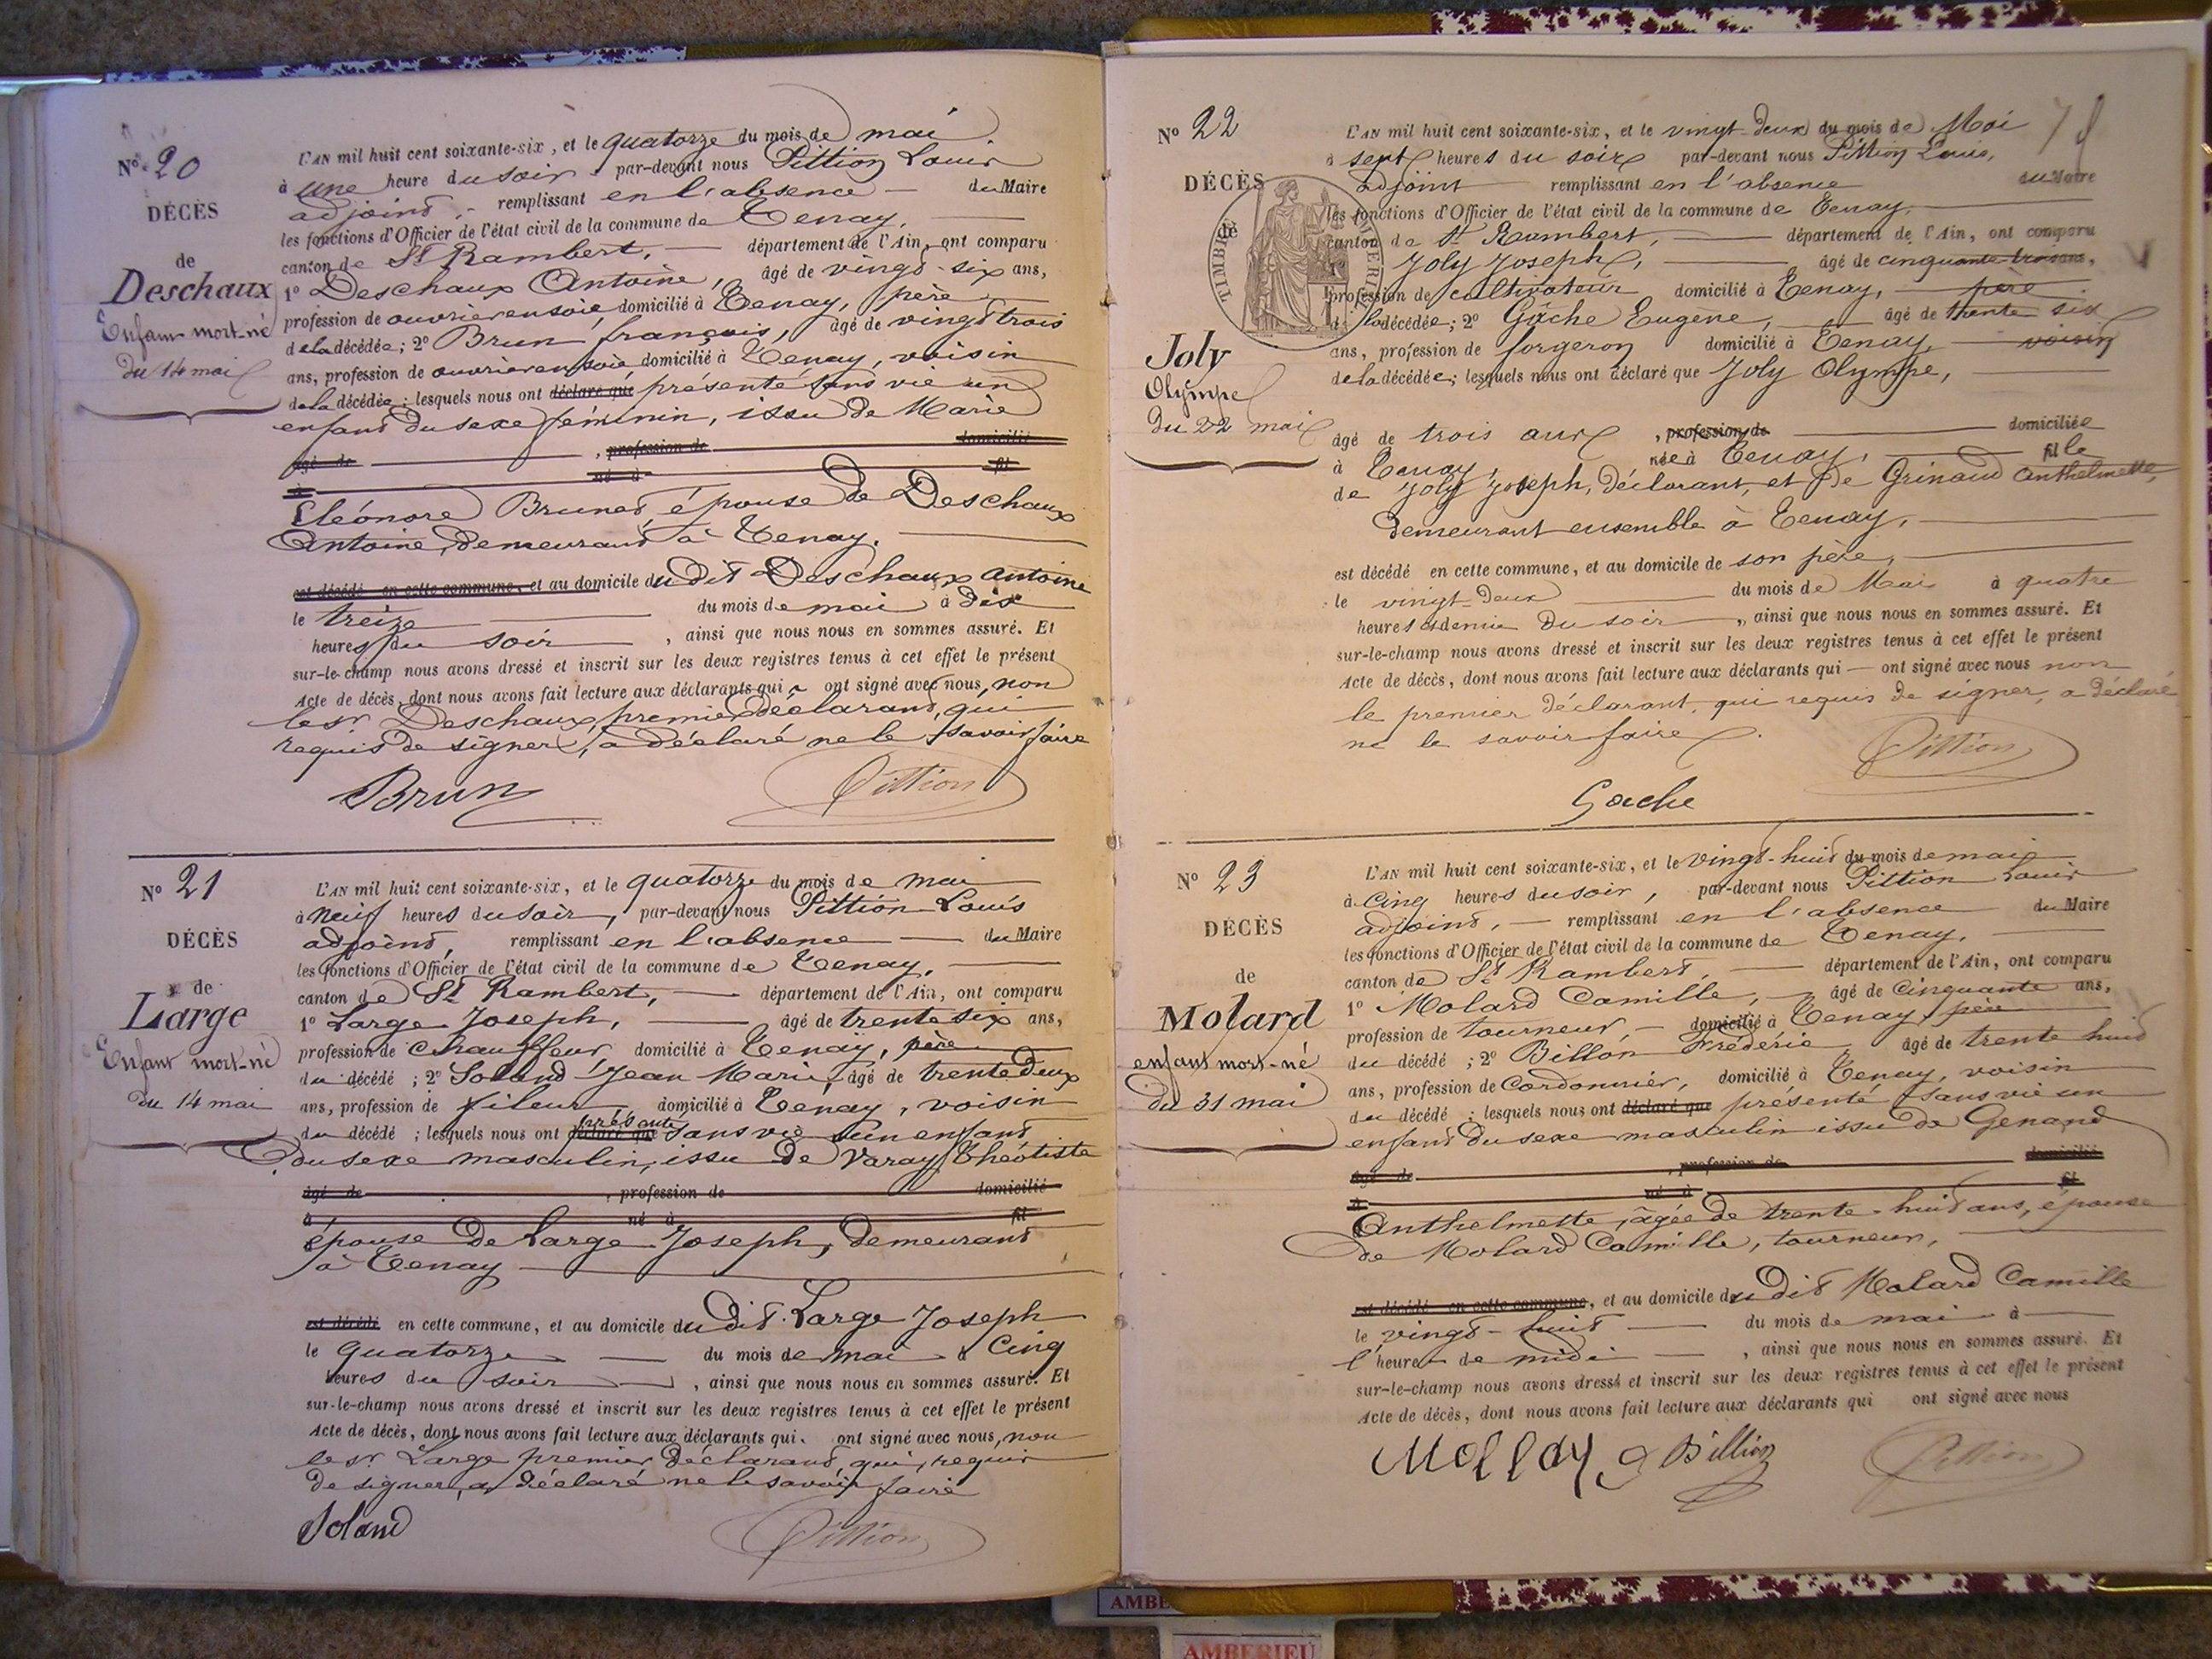 No 20
DÉCÈS
de
Deschaux
Enfant mort-né
du 14 mai
L'AN mil huit cent soixante-six, et le quatorze du mois de mai
à une heure du soir par-devant nous Pittion Louis
adjoint, remplissant en l'absence du Maire
les fonctions d'Officier de l'état civil de la commune de Tenay,
canton de St Rambert, département de l'Ain, ont comparu
1º Deschaux Antoine, âgé de vingt-six ans,
profession de ouvrier en soie domicilié à Tenay, père
de la décédée; 2º Brun françois, âgé de vingt trois
ans, profession de ouvrier en soie, domicilié à Tenay, voisin
de la décédée; lesquels nous ont déclaré que présenté sans vie un
enfant du sexe féminin, issu de Marie
âgé de , profession de domicilié
à né à fil
Eléonore Brunet, épouse de Deschaux
Antoine, demeurant à Tenay.
est décédé en cette commune, et au domicile dudit Deschaux Antoine
le treize du mois de mai à dix
heures du soir, ainsi que nous nous en sommes assuré. Et
sur-le-champ nous avons dressé et inscrit sur les deux registres tenus à cet effet le présent
Acte de décès, dont nous avons fait lecture aux déclarants qui ont signé avec nous, non
le sr Deschaux, premier déclarant, qui
requis de signer, a déclaré ne le savoir faire
Brun Pittion
No 21
DÉCÈS
de
Large
Enfant mort-né
du 14 mai
L'AN mil huit cent soixante-six, et le quatorze du mois de mai
à neuf heures du soir, par-devant nous Pittion Louis
adjoint, remplissant en l'absence du Maire
les fonctions d'Officier de l'état civil de la commune de Tenay,
canton de St Rambert, département de l'Ain, ont comparu
1º Large Joseph, âgé de trente six ans,
profession de chauffeur, domicilié à Tenay, père
du décédé; 2º Soland Jean Marie, âgé de trente deux
ans, profession de fileur domicilié à Tenay, voisin
du décédé; lesquels nous ont déclaré que présenté sans vie un enfant
du sexe masculin, issu de Varay Théotiste
âgé de , profession de domicilié
à né à fil
épouse de Large Joseph, demeurant
à Tenay
est décédé en cette commune, et au domicile dudit Large Joseph
le quatorze du mois de mai à cinq
heures du soir, ainsi que nous nous en sommes assuré. Et
sur-le-champ nous avons dressé et inscrit sur les deux registres tenus à cet effet le présent
Acte de décès, dont nous avons fait lecture aux déclarants qui ont signé avec nous, non
le sr Large premier déclarant, qui, requis
de signer, a déclaré ne le savoir faire
Soland Pittion
No 22
DÉCÈS
de
Joly
Olympe
du 22 mai
L'AN mil huit cent soixante-six, et le vingt-deux du mois de Mai
à sept heures du soir par-devant nous Pittion Louis,
adjoint remplissant en l'absence du Maire
les fonctions d'Officier de l'état civil de la commune de Tenay,
canton de St Rambert, département de l'Ain, ont comparu
1º Joly Joseph, âgé de cinquante-trois ans,
profession de cultivateur domicilié à Tenay, père
de la décédée; 2º Gâche Eugène, âgé de trente six
ans, profession de forgeron domicilié à Tenay, voisin
de la décédée; lesquels nous ont déclaré que Joly Olympe,
âgé de trois ans, profession de domiciliée
à Tenay, née à Tenay, fille
de Joly Joseph, déclarant, et de Grinand Anthelmette,
demeurant ensemble à Tenay,
est décédé en cette commune, et au domicile de son père,
le vingt-deux du mois de Mai à quatre
heures et demie du soir, ainsi que nous nous en sommes assuré. Et
sur-le-champ nous avons dressé et inscrit sur les deux registres tenus à cet effet le présent
Acte de décès, dont nous avons fait lecture aux déclarants qui ont signé avec nous non
le premier déclarant, qui requis de signer, a déclaré
ne le savoir faire.
Pittion
Gache
No 23
DÉCÈS
de
Molard
enfant mort-né
du 31 mai
L'AN mil huit cent soixante-six, et le vingt-huit du mois de mai
à cinq heures du soir, par-devant nous Pittion Louis
adjoint, remplissant en l'absence du Maire
les fonctions d'Officier de l'état civil de la commune de Tenay,
canton de St Rambert, département de l'Ain, ont comparu
1º Molard Camille, âgé de cinquante ans,
profession de tourneur, domicilié à Tenay, père
du décédé; 2º Billon Frédéric âgé de trente huit
ans, profession de cordonnier, domicilié à Tenay, voisin
du décédé; lesquels nous ont déclaré que présenté sans vie un
enfant du sexe masculin issu de Genand
âgé de , profession de domicilié
à né à fil
Anthelmette, âgée de trente-huit ans, épouse
de Molard Camille, tourneur,
est décédé en cette commune, et au domicile dudit Molard Camille
le vingt-huit du mois de mai à
l'heure de midi, ainsi que nous nous en sommes assuré. Et
sur-le-champ nous avons dressé et inscrit sur les deux registres tenus à cet effet le présent
Acte de décès, dont nous avons fait lecture aux déclarants qui ont signé avec nous
Billion Pittion
AMBE
AMBERIEU